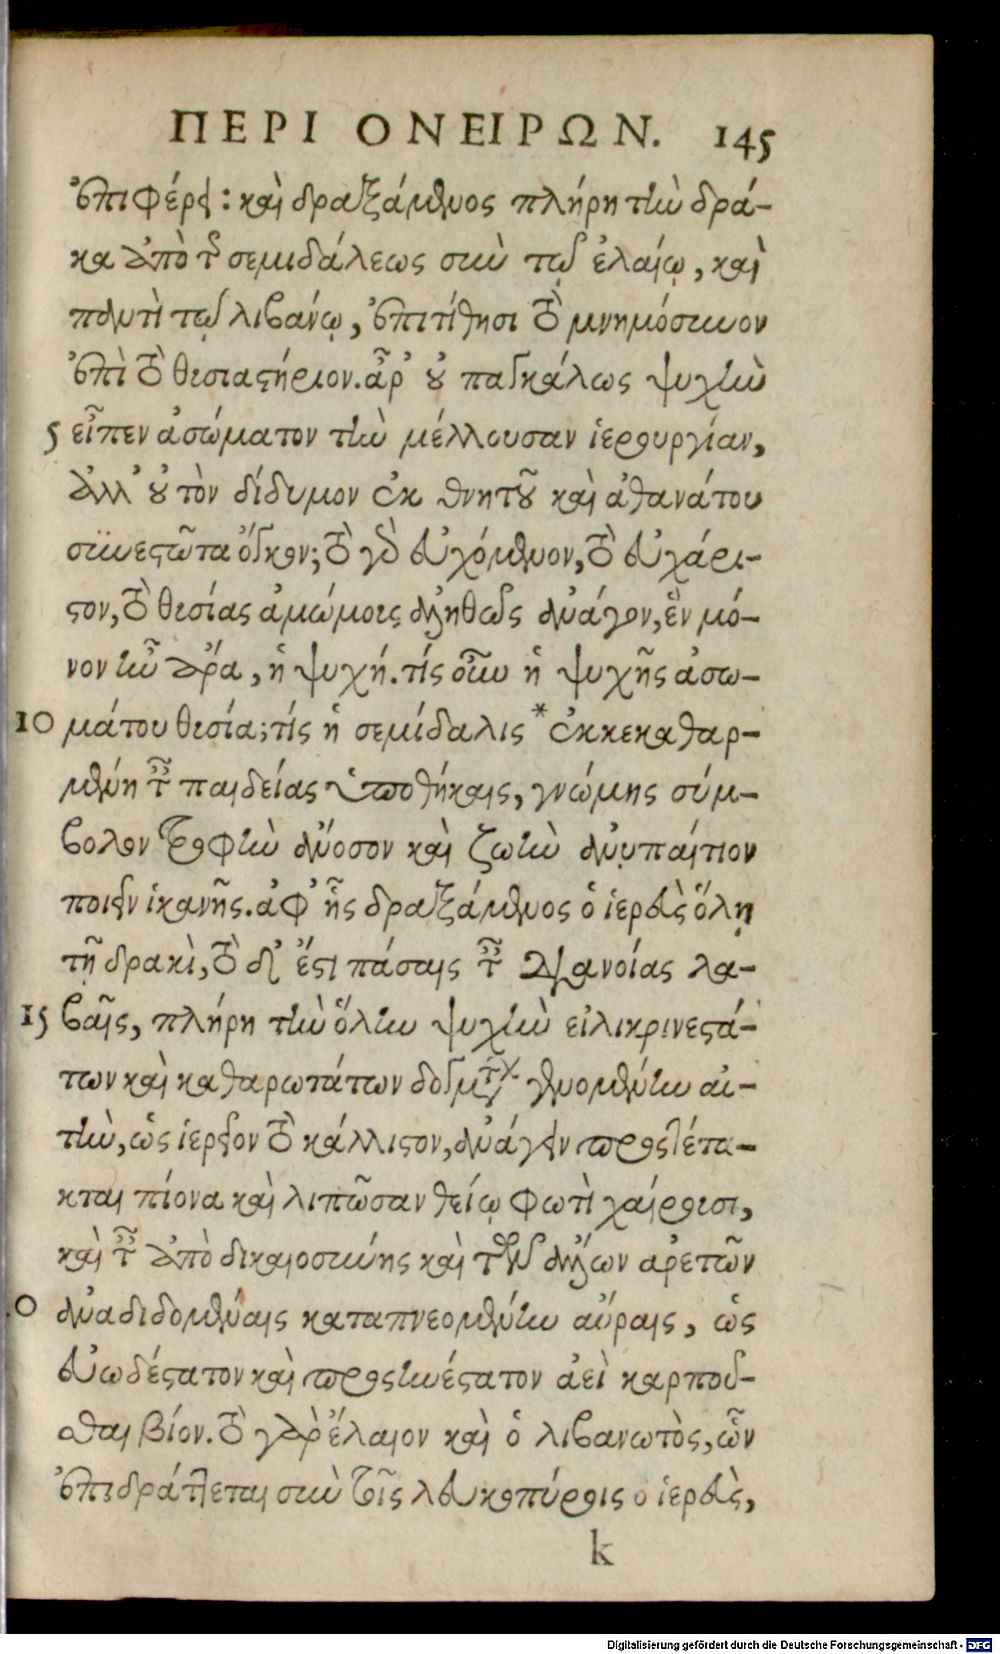 ΠΕΡΙ ΟΝΕΙΡΩΝ. 145
ἐπιφέρει: καὶ δραξάμενος πλήρη τὴν δρά-
κα ἀπὸ τῆς σεμιδάλεως σὺν τῷ ἐλαίῳ, καὶ
παντὶ τῷ λιβάνῳ, ἐπιτίθησι τὸ μνημόσυνον
ἐπὶ τὸ θυσιαστήριον. ἆρ' οὐ παγκάλως ψυχὴν
5 εἶπεν ἀσώματον τὴν μέλλουσαν ἱερουργίαν,
ἀλλ' οὐ τὸν δίδυμον ἐκ θνητοῦ καὶ ἀθανάτου
συνεστῶτα ὄγκον; τὸ γὰρ εὐχόμενον, τὸ εὐχάρι-
στον, τὸ θυσίας ἀμώμους ἀληθῶς ἀνάγον, ἓν μό-
νον ἦν ἄρα, ἡ ψυχή. τίς οὖν ἡ ψυχῆς ἀσω-
10 μάτου θυσία; τίς ἡ σεμίδαλις * ἐκκεκαθαρ-
μένη ταῖς παιδείας ὑποθήκαις, γνώμης σύμ-
βολον τροφὴν ἄνοσον καὶ ζωὴν ἀνυπαίτιον
ποιεῖν ἱκανῆς. ἀφ' ἧς δραξάμενος ὁ ἱερεὺς ὅλῃ
τῇ δρακὶ, τὸ δ' ἔστι πάσαις ταῖς διανοίας λα-
15 βαῖς, πλήρη τὴν ὅλην ψυχὴν εἰλικρινεστά-
των καὶ καθαρωτάτων δογμάτων γενομένην αὐ-
τὴν, ὡς ἱερεῖον τὸ κάλλιστον, ἀνάγειν προστέτα-
κται πίονα καὶ λιπῶσαν θείῳ φωτὶ χαίρουσι,
καὶ ταῖς ἀπὸ δικαιοσύνης καὶ τῶν ἄλλων ἀρετῶν
0 ἀναδιδομέναις καταπνεομένην αὔραις, ὡς
εὐωδέστατον καὶ προσηνέστατον ἀεὶ καρποῦ-
σθαι βίον. τὸ γὰρ ἔλαιον καὶ ὁ λιβανωτὸς, ὧν
ἐπιδράττεται σὺν τοῖς λευκοπύροις ὁ ἱερεὺς,
k
Digitalisierung gefördert durch die Deutsche Forschungsgemeinschaft - DFG